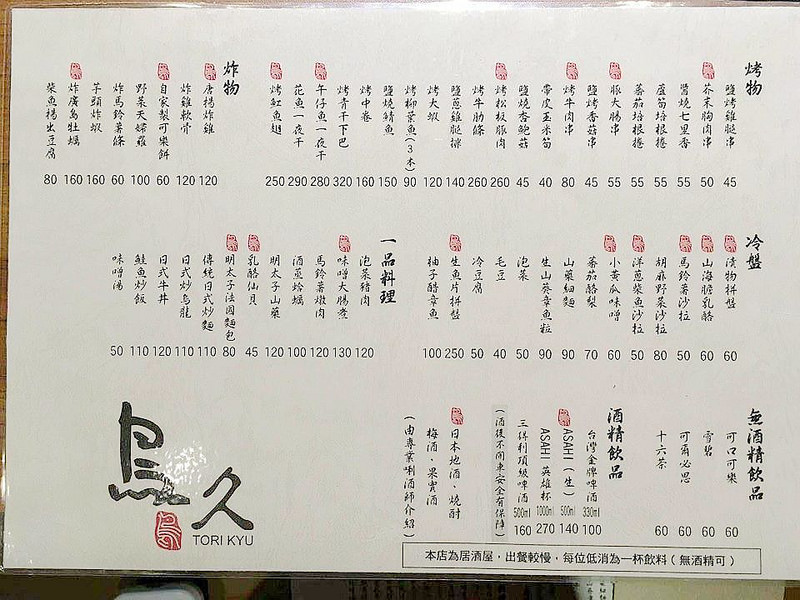 烤物
鹽烤雞腿串 45
芥末胸肉串 50
醬燒七里香 55
蘆筍培根捲 55
蕃茄培根捲 55
豚大腸串 55
鹽烤香菇串 45
烤牛肉串 80
帶皮玉米筍 40
鹽燒杏鮑菇 45
烤松板豚肉 260
烤牛肋條 260
鹽蔥雞腿排 140
烤大蝦 120
烤柳葉魚(3本) 90
鹽燒鯖魚 150
烤中卷 160
烤青干下巴 320
午仔魚一夜干 280
花魚一夜干 290
烤魟魚翅 250
炸物
唐揚炸雞 120
炸雞軟骨 120
自家製可樂餅 60
野菜天婦羅 100
炸馬鈴薯條 60
芋頭炸蝦 160
炸廣島牡蠣 160
柴魚揚出豆腐 80
冷盤
漬物拼盤 60
山海膽乳酪 60
馬鈴薯沙拉 50
胡麻野菜沙拉 80
洋蔥柴魚沙拉 50
小黃瓜味噌 60
蕃茄酪梨 70
山藥細麵 90
生山葵章魚粒 90
泡菜 50
毛豆 40
冷豆腐 50
生魚片拼盤 250
柚子醋章魚 100
一品料理
泡菜豬肉 120
味噌大腸煮 130
馬鈴薯燉肉 120
酒蒸蛤蠣 100
明太子山藥 120
乳酪仙貝 45
明太子法國麵包 80
傳統日式炒麵 110
日式炒烏龍 110
日式牛丼 120
鮭魚炒飯 110
味噌湯 50
無酒精飲品
可口可樂 60
雪碧 60
可爾必思 60
十六茶 60
酒精飲品
台灣金牌啤酒 330ml 100
ASAHI(生) 500ml 140
ASAHI 英雄杯 1000ml 270
三得利頂級啤酒 500ml 160
(酒後不開車安全有保障)
日本地酒、燒酎
梅酒、果實酒
(由專業唎酒師介紹)
鳥久
TORI KYU
本店為居酒屋，出餐較慢，每位低消為一杯飲料(無酒精可)